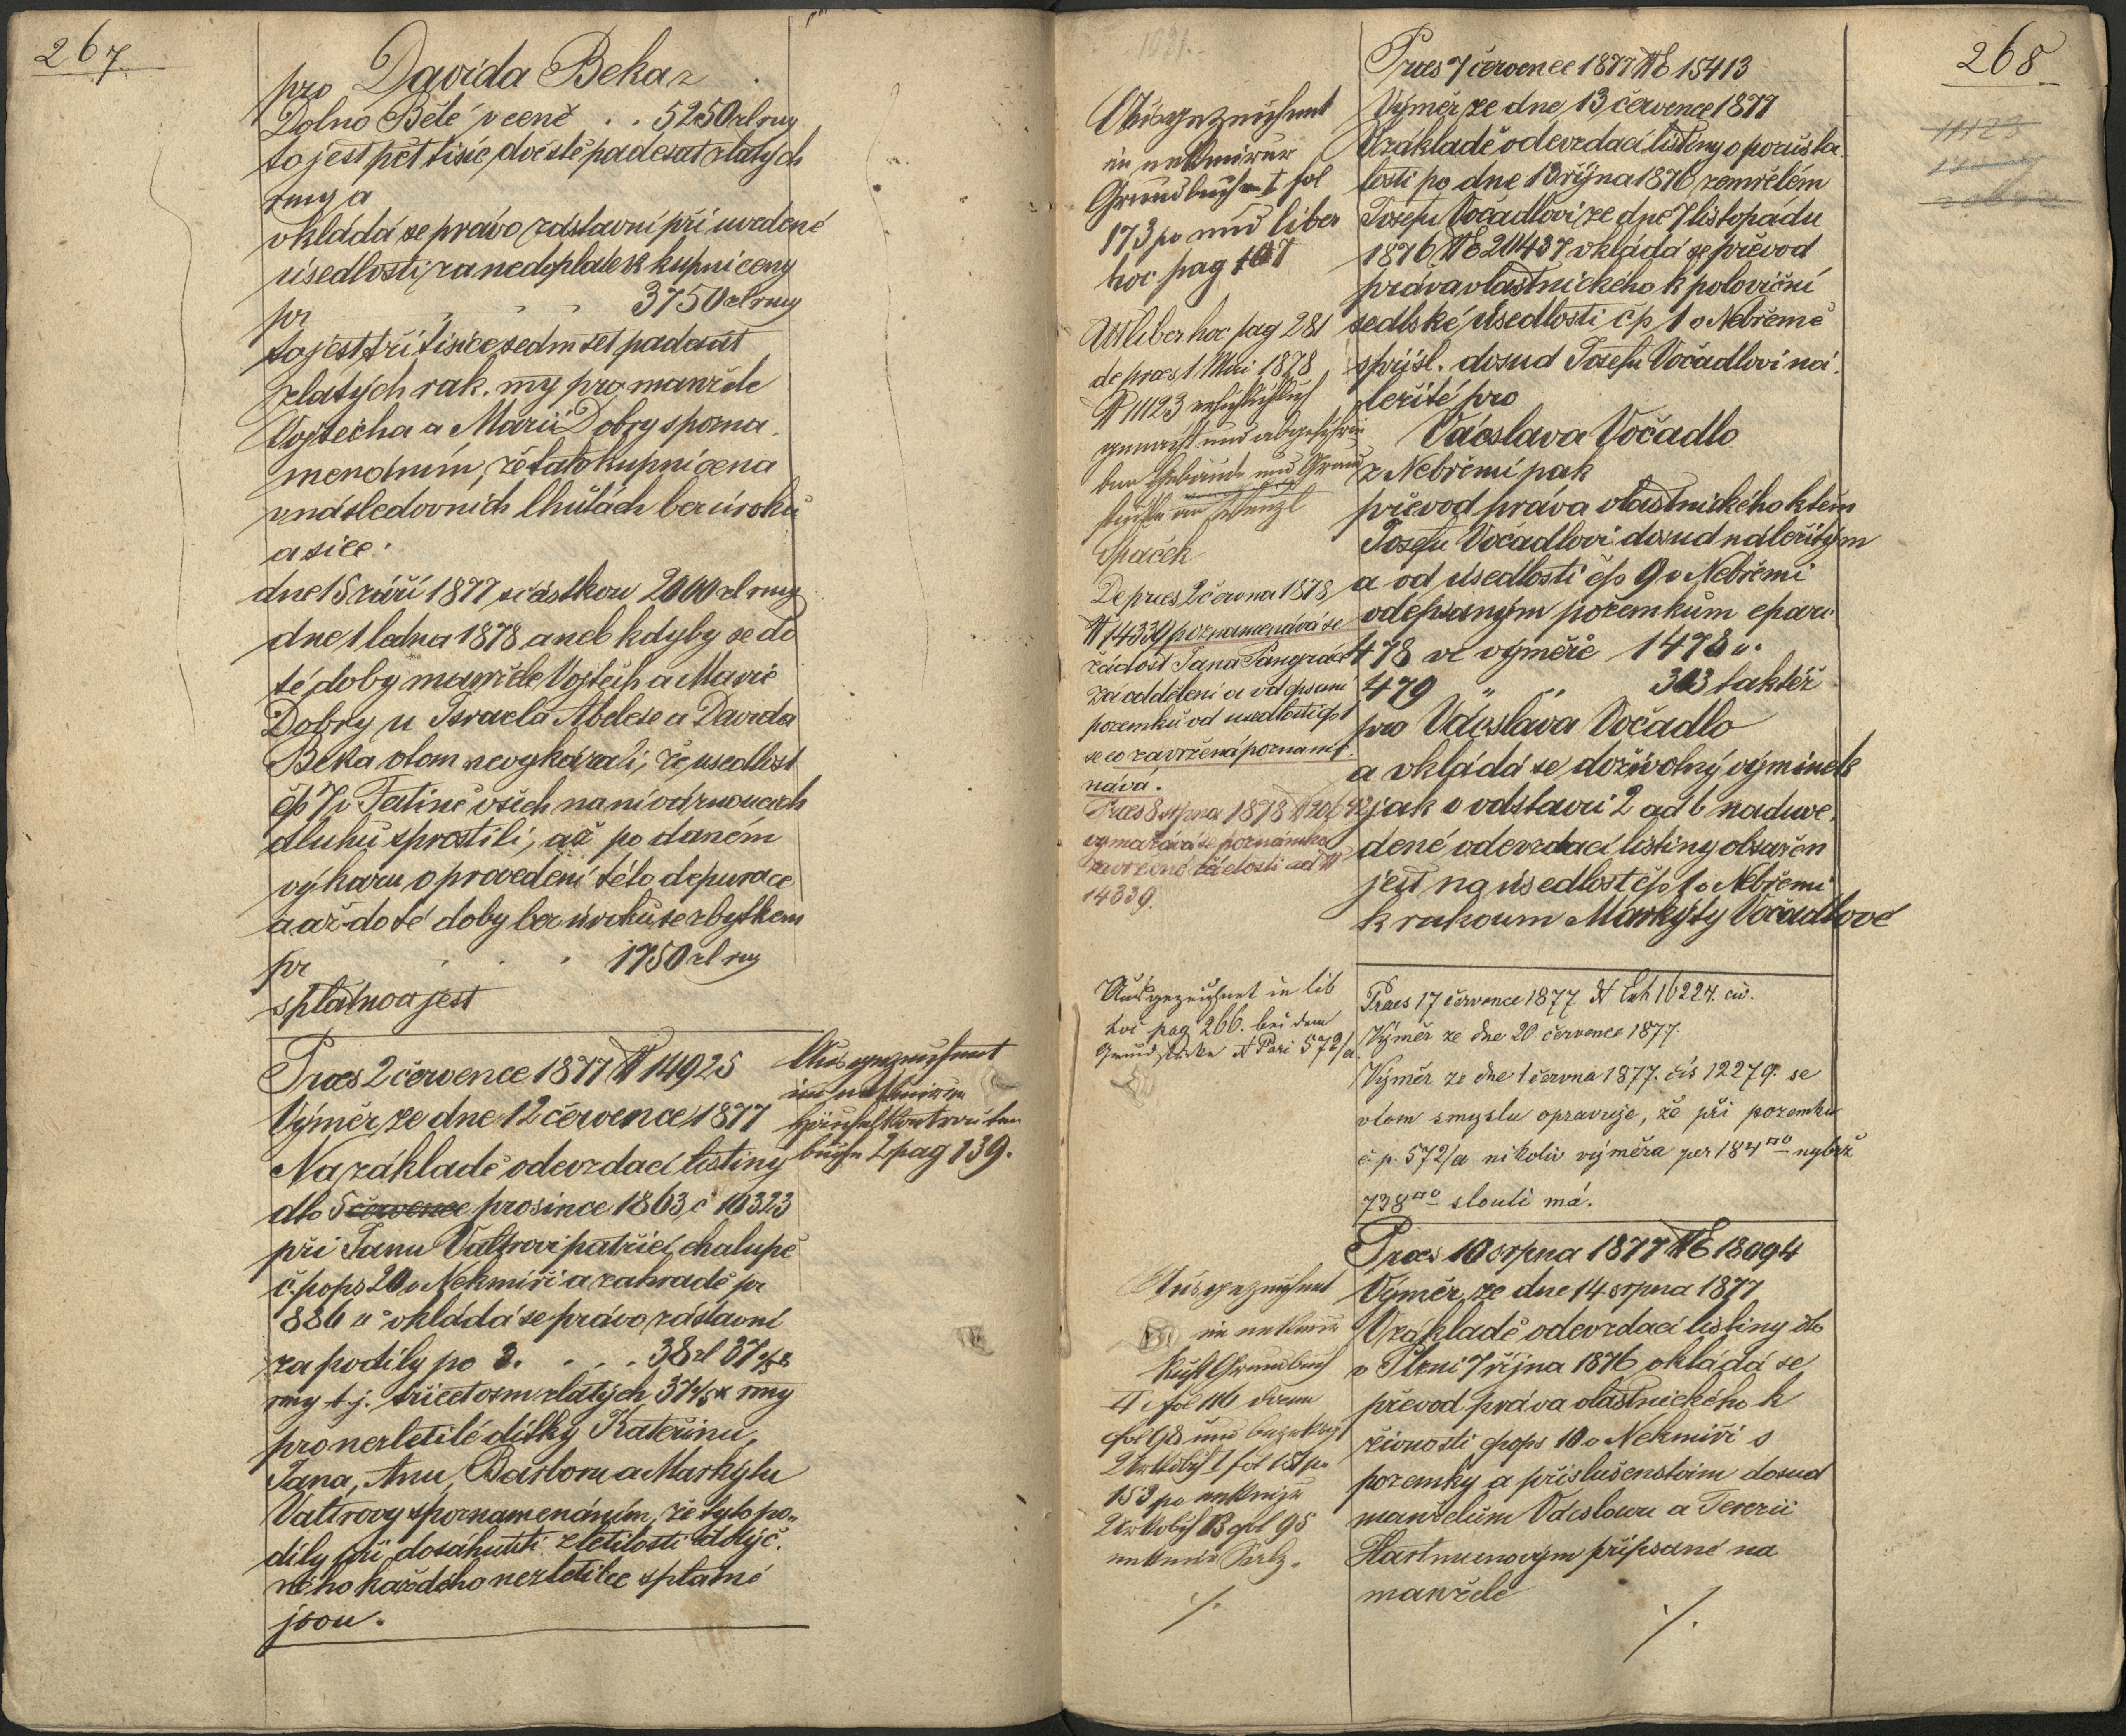 267.
pro Davida Beka z
Dolno Bělé v ceně . . 5250 zl rmy
to jest pět tisíc dvěstě padesat zlatých
rmy a
vkládá se právo zástavní při uvedené
úsedlosti za nedoplatek kupní ceny
pr 3750 zl rmy
to jest tři tisíce sedm set padesát
zlatých rak. my pro manžele
Vojtěcha a Marii Dobry s pozna
menáním, že tato kupní cena
v následovních lhůtách bez úroků
a sice.
dne 15 září 1877 částkou 2000 zl rmy
dne 1 ledna 1878 aneb kdyby se do
té doby manžele Vojtěch a Marie
Dobry u Israela Abelese a Davida
Beka otom nevykázali, že usedlost
čp 7 v Tatině všech na ní váznoucích
dluhů sprostili, až po daném
výkazu o provedení této depurace
a až do té doby bez úroků se zbytkem
pr . . . 1750 zl rmy
splatnoa jest
Praes 2 července 1877 N 14925
Výměr ze dne 12 července 1877
Na základě odevzdací listiny
dto 5 července prosince 1863 č 10323
při Janu Valtrovi patřící chalupě
č. pops 20 v Nekmíři a zahradě pr
886 □° vkládá se právo zástavní
za podíly po 3. . . . 38 zl 37
rmy t. j. třicet osm zlatých 37 rmy
pro nezletilé dítky Kateřinu,
Jana, Anu, Barboru a Markýtu
Valtrovy s poznamenáním, že tyto po-
díly při dosáhnutí zletilosti tolýč.
ného každého nezletilce splatné
jsou.
Ausgezeichnet
im nekmirer
Häuselkontrouten
buche 2 pag 139.
268
11123
Ausgezeichnet
in nekmirer
Grundbuch I fol
173 po und liber
hoc pag 107
Ut liber hoc pag 281
de praes 1 Mai 1878
N 11123 ersichtlich
gemacht und abgeschrie
ben Gebäude und Grund
stücke an Wenzl
Spaček
De praes 2 června 1878
N 14339 poznamenává se
žádost Jana Pangráce
za oddělení a odepsaní
pozemků od usedlosti čp 1
se co zavržená poznamé
nává.
Praes 8 srpna 1878 N 20642
vymazává se poznámka
zavržené žádosti ad N
14339.
Ausgezeichnet in lib
hoc pag 266. bei dem
Grundstücke N Parz 572/a
Ausgezeichnet
in nekmir
Kust Grundbuch
I fol 116 dann
fol 98 und bezüglich
Urkdbch I fol 151 po
153 po nekmire
Urkdbch B fol 95
nekmire Satz.
·/.
Praes 7 července 1877 NE 15413
Výměr ze dne 13 července 1877
V základě odevzdací listiny o pozůsta
losti po dne 13 října 1876 zemřelém
Josefu Vočadlovi ze dne 7 listopádu
1876 NE 20437 vkládá se převod
práva vlastnického k poloviční
sedlské úsedlosti čp 1 v Nebřemě
s přísl. dosud Josefu Vočadlovi ná.
ležité pro
Václava Vočadlo
z Nebřemi pak
převod práva vlastnického k těm
Josefu Vočadlovi dosud náležitým
a od úsedlosti čp 9 v Nebřemi
odepsaným pozemkům cparc.
478 ve výměře 1478 □.
479 " " 303 taktéž
pro Václava Vočadlo
a vkládá se doživotný výminek
jak v odstavci 2 ad b naduve.
dené odevzdací listiny obsažen
jest na úsedlost čp 1 v Nebřemi
k rukoum Markýty Vočadlové
Praes 17 července 1877 N Exh 16224. civ.
Výměr ze dne 20 července 1877.
Výměr ze dne 1 června 1877. čís 12279. se
v tom smyslu opravuje, že při pozemku
č. p. 572/a nikoliv výměra per 184□° nybrž
738□° slouti má.
Praes 10 srpna 1877 NE 18094
Výměr ze dne 14 srpna 1877
V základě odevzdací listiny dto
v Plzni 7 října 1876 vkládá se
převod práva vlastnického k
živnosti čpops 10 v Nekmíři s
pozemky a příslušenstvím dosud
manželům Václavu a Terezii
Hartmanovým připsané na
manžele
·/.